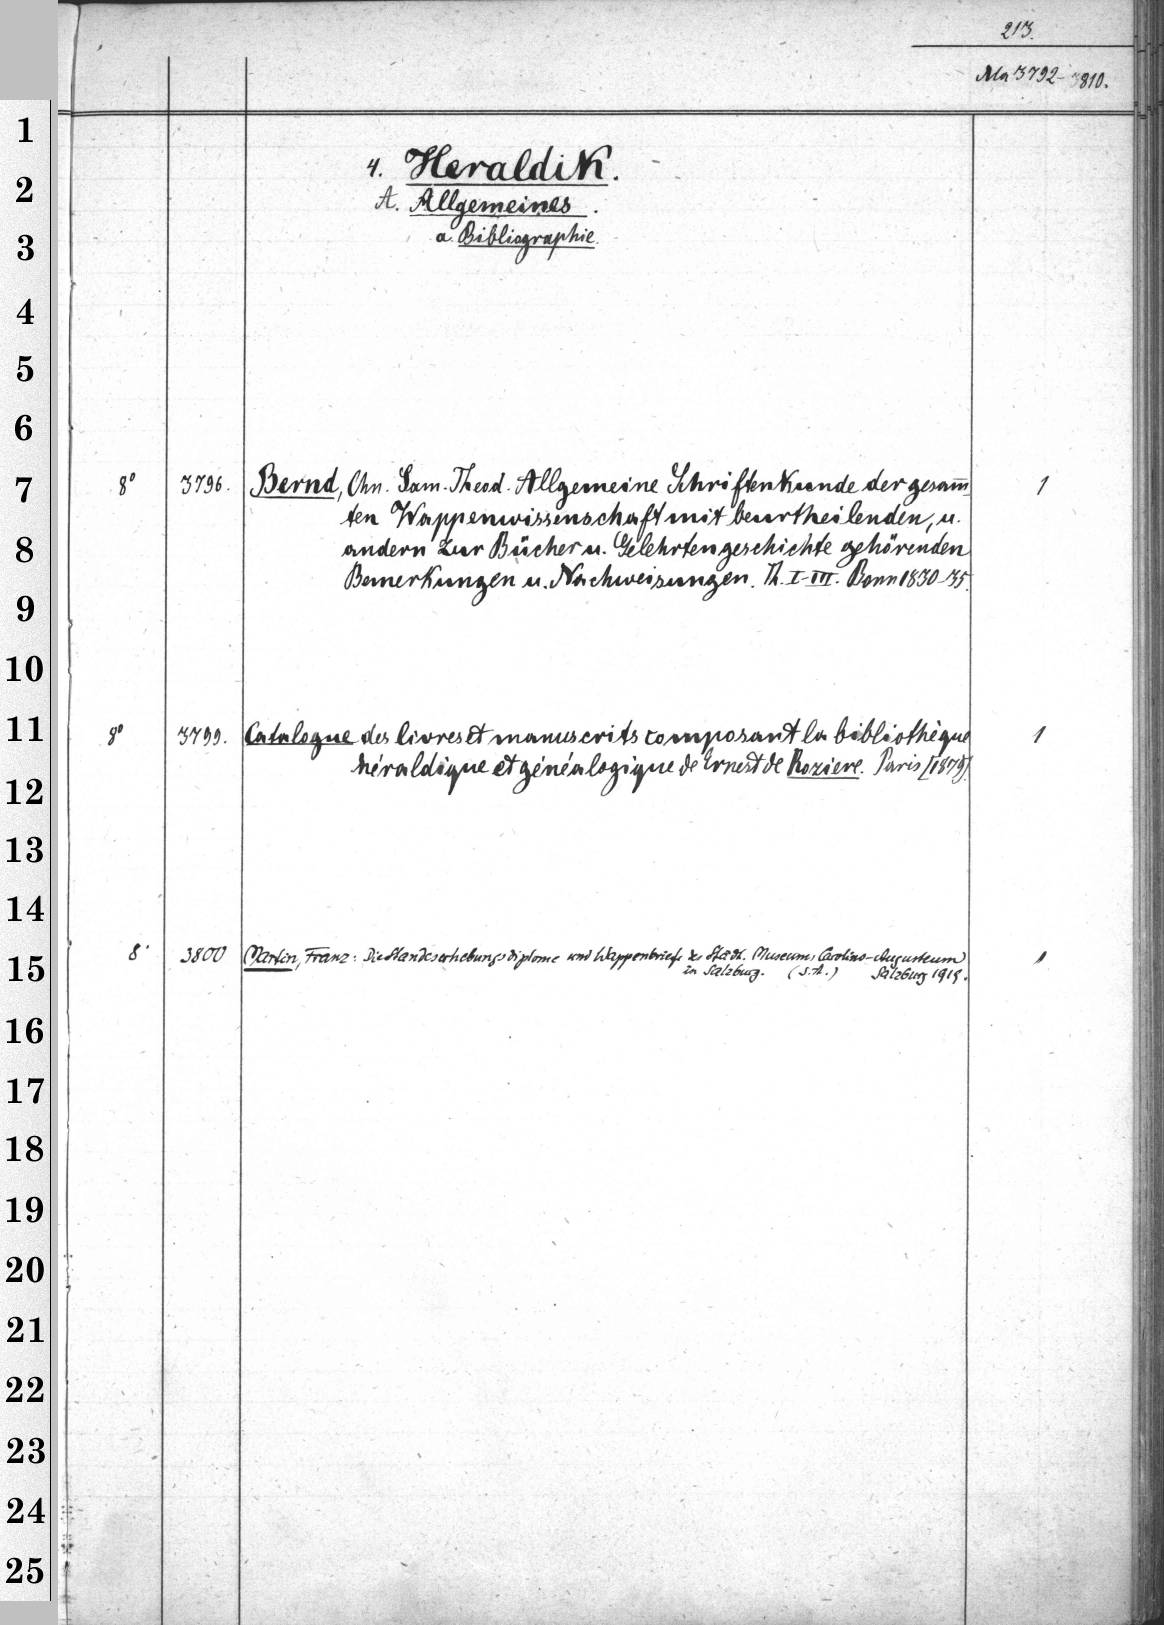 213.
Ma 3792-3810.
4. Heraldik.
A. Allgemeines.
a. Bibliographie.
8° 3796. Bernd, Chn. Sam. Theod. Allgemeine Schriftenkunde der gesam̅
ten Wappenwissenschaft mit beurtheilenden, u.
andern zur Bücher u. Gelehrtengeschichte gehörenden
Bemerkungen u. Nachweisungen. Th. I-III. Bonn 1830-35. 1
8° 3799. Catalogue des livres et manuscrits composant la bibliothèque
héraldique et généalogique de Ernest de Roziere. Paris [1879]. 1
8° 3800 Martin, Franz: Die Standeserhebungsdiplome und Wappenbriefe des Städt. Museums Carolino-Augusteum
in Salzburg. (S.A.) Salzburg 1919. 1
1
2
3
4
5
6
7
8
9
10
11
12
13
14
15
16
17
18
19
20
21
22
23
24
25